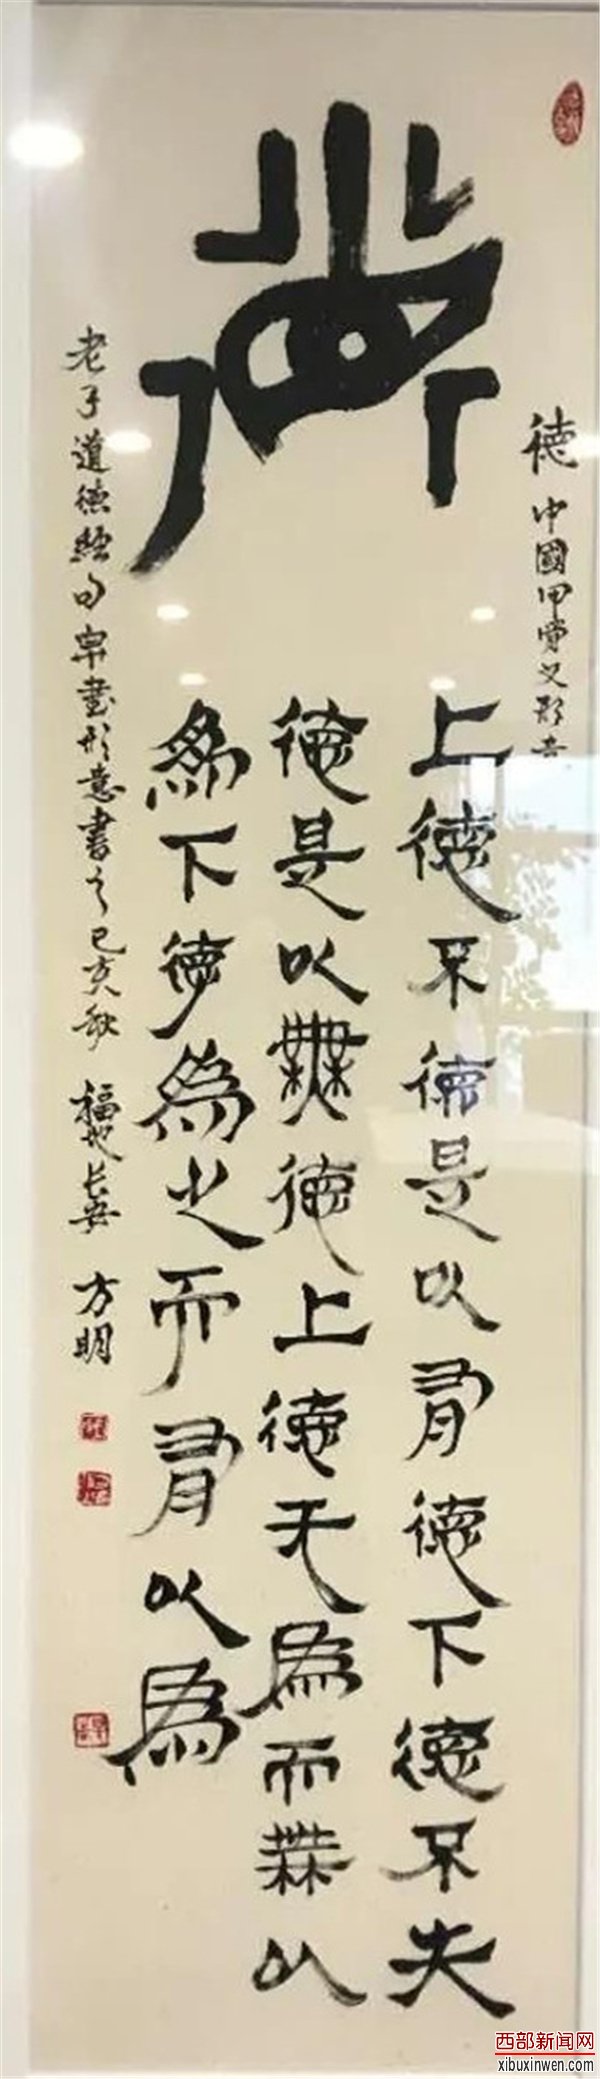 德
德 中國甲骨文形意
上德不德是以有德下德不失
德是以無德上德无為而無以
為下德為之而有以為
老子道德經句帛書形意書之己亥秋 福地長安 方明
西部新闻网
xibuxinwen.com